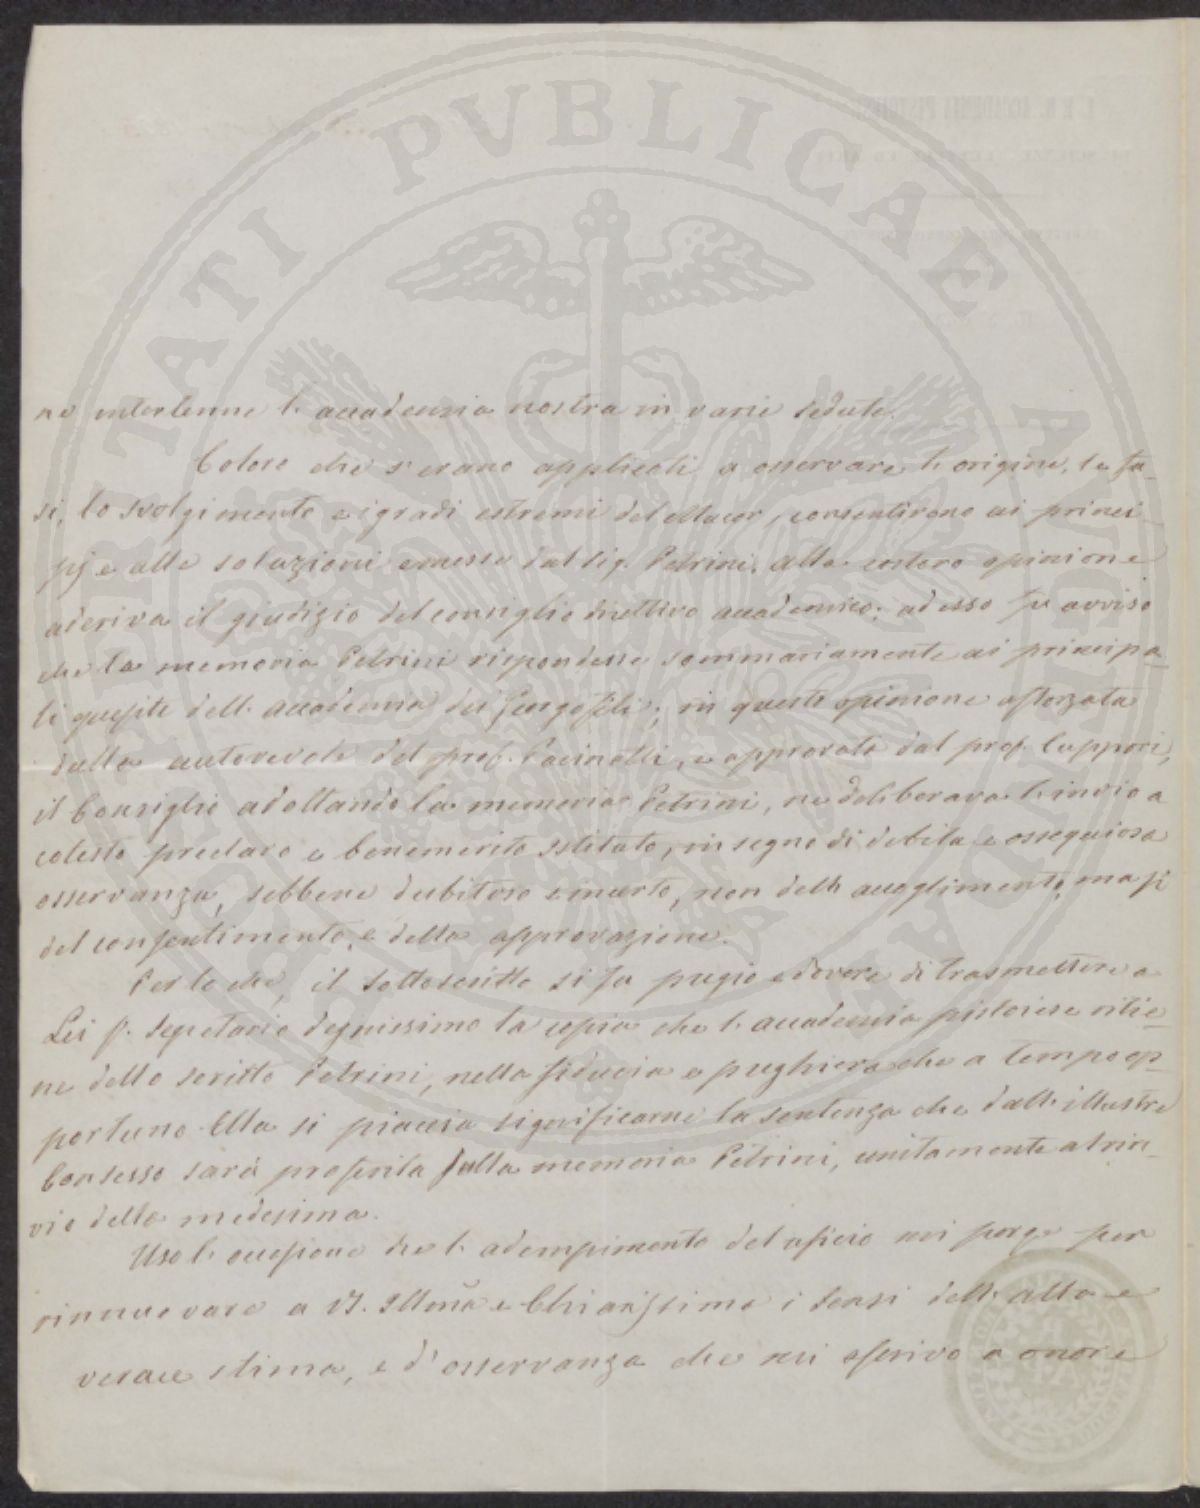 PROSPERITATI PVBLICAE AVGENDAE
ne intertenne l'accademia nostra in varie sedute.
Coloro che s'erano applicati a osservare l'origine, le fa-
si, lo svolgimento e i gradi estremi del Mucor, consentirono ai princi-
pj e alle soluzioni emesse dal sig. Petrini. Alla costoro opinione
aderiva il giudizio del consiglio direttivo accademico; ad esso fu avviso
che la memoria Petrini rispondesse sommariamente ai principa-
li quesiti dell'accademia dei Georgofili; in questa opinione afforzata
dalla autorevole del prof. Pacinotti, e approvata dal prof. Cuppari,
il Consiglio adottando la memoria Petrini, ne deliberava l'invio a
cotesto preclaro e benemerito Istituto, in segno di debita e ossequiosa
osservanza, sebbene dubitoso e incerto, non dell'accoglimento, ma sì
del consentimento, e della approvazione.
Per lo che, il sottoscritto si fa pregio e dovere di trasmettere a
Lei S. Segretario degnissimo la copia che l'accademia pistoiese ritie-
ne dello scritto Petrini, nella fiducia e preghiera che a tempo op-
portuno Ella si piaccia significarne la sentenza che dall'illustre
Consesso sarà proferita sulla memoria Petrini, unitamente al rin-
vio della medesima.
Uso l'occasione che l'adempimento del uficio mi porge per
rinnuovare a VS. Illma e Chiarissima i sensi dell'alta e
verace stima, e d'osservanza che mi ascrivo a onore